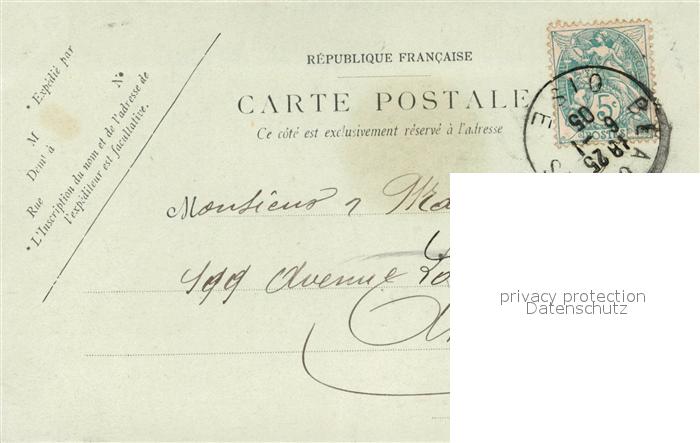 RÉPUBLIQUE FRANÇAISE
CARTE POSTALE
Ce côté est exclusivement réservé à l'adresse
* Expédié par
N°
M
Dem^t à
Rue
* L'Inscription du nom et de l'adresse de
l'expéditeur est facultative.
5c
POSTES
25
05
Monsieur
199 Avenue
privacy protection
Datenschutz